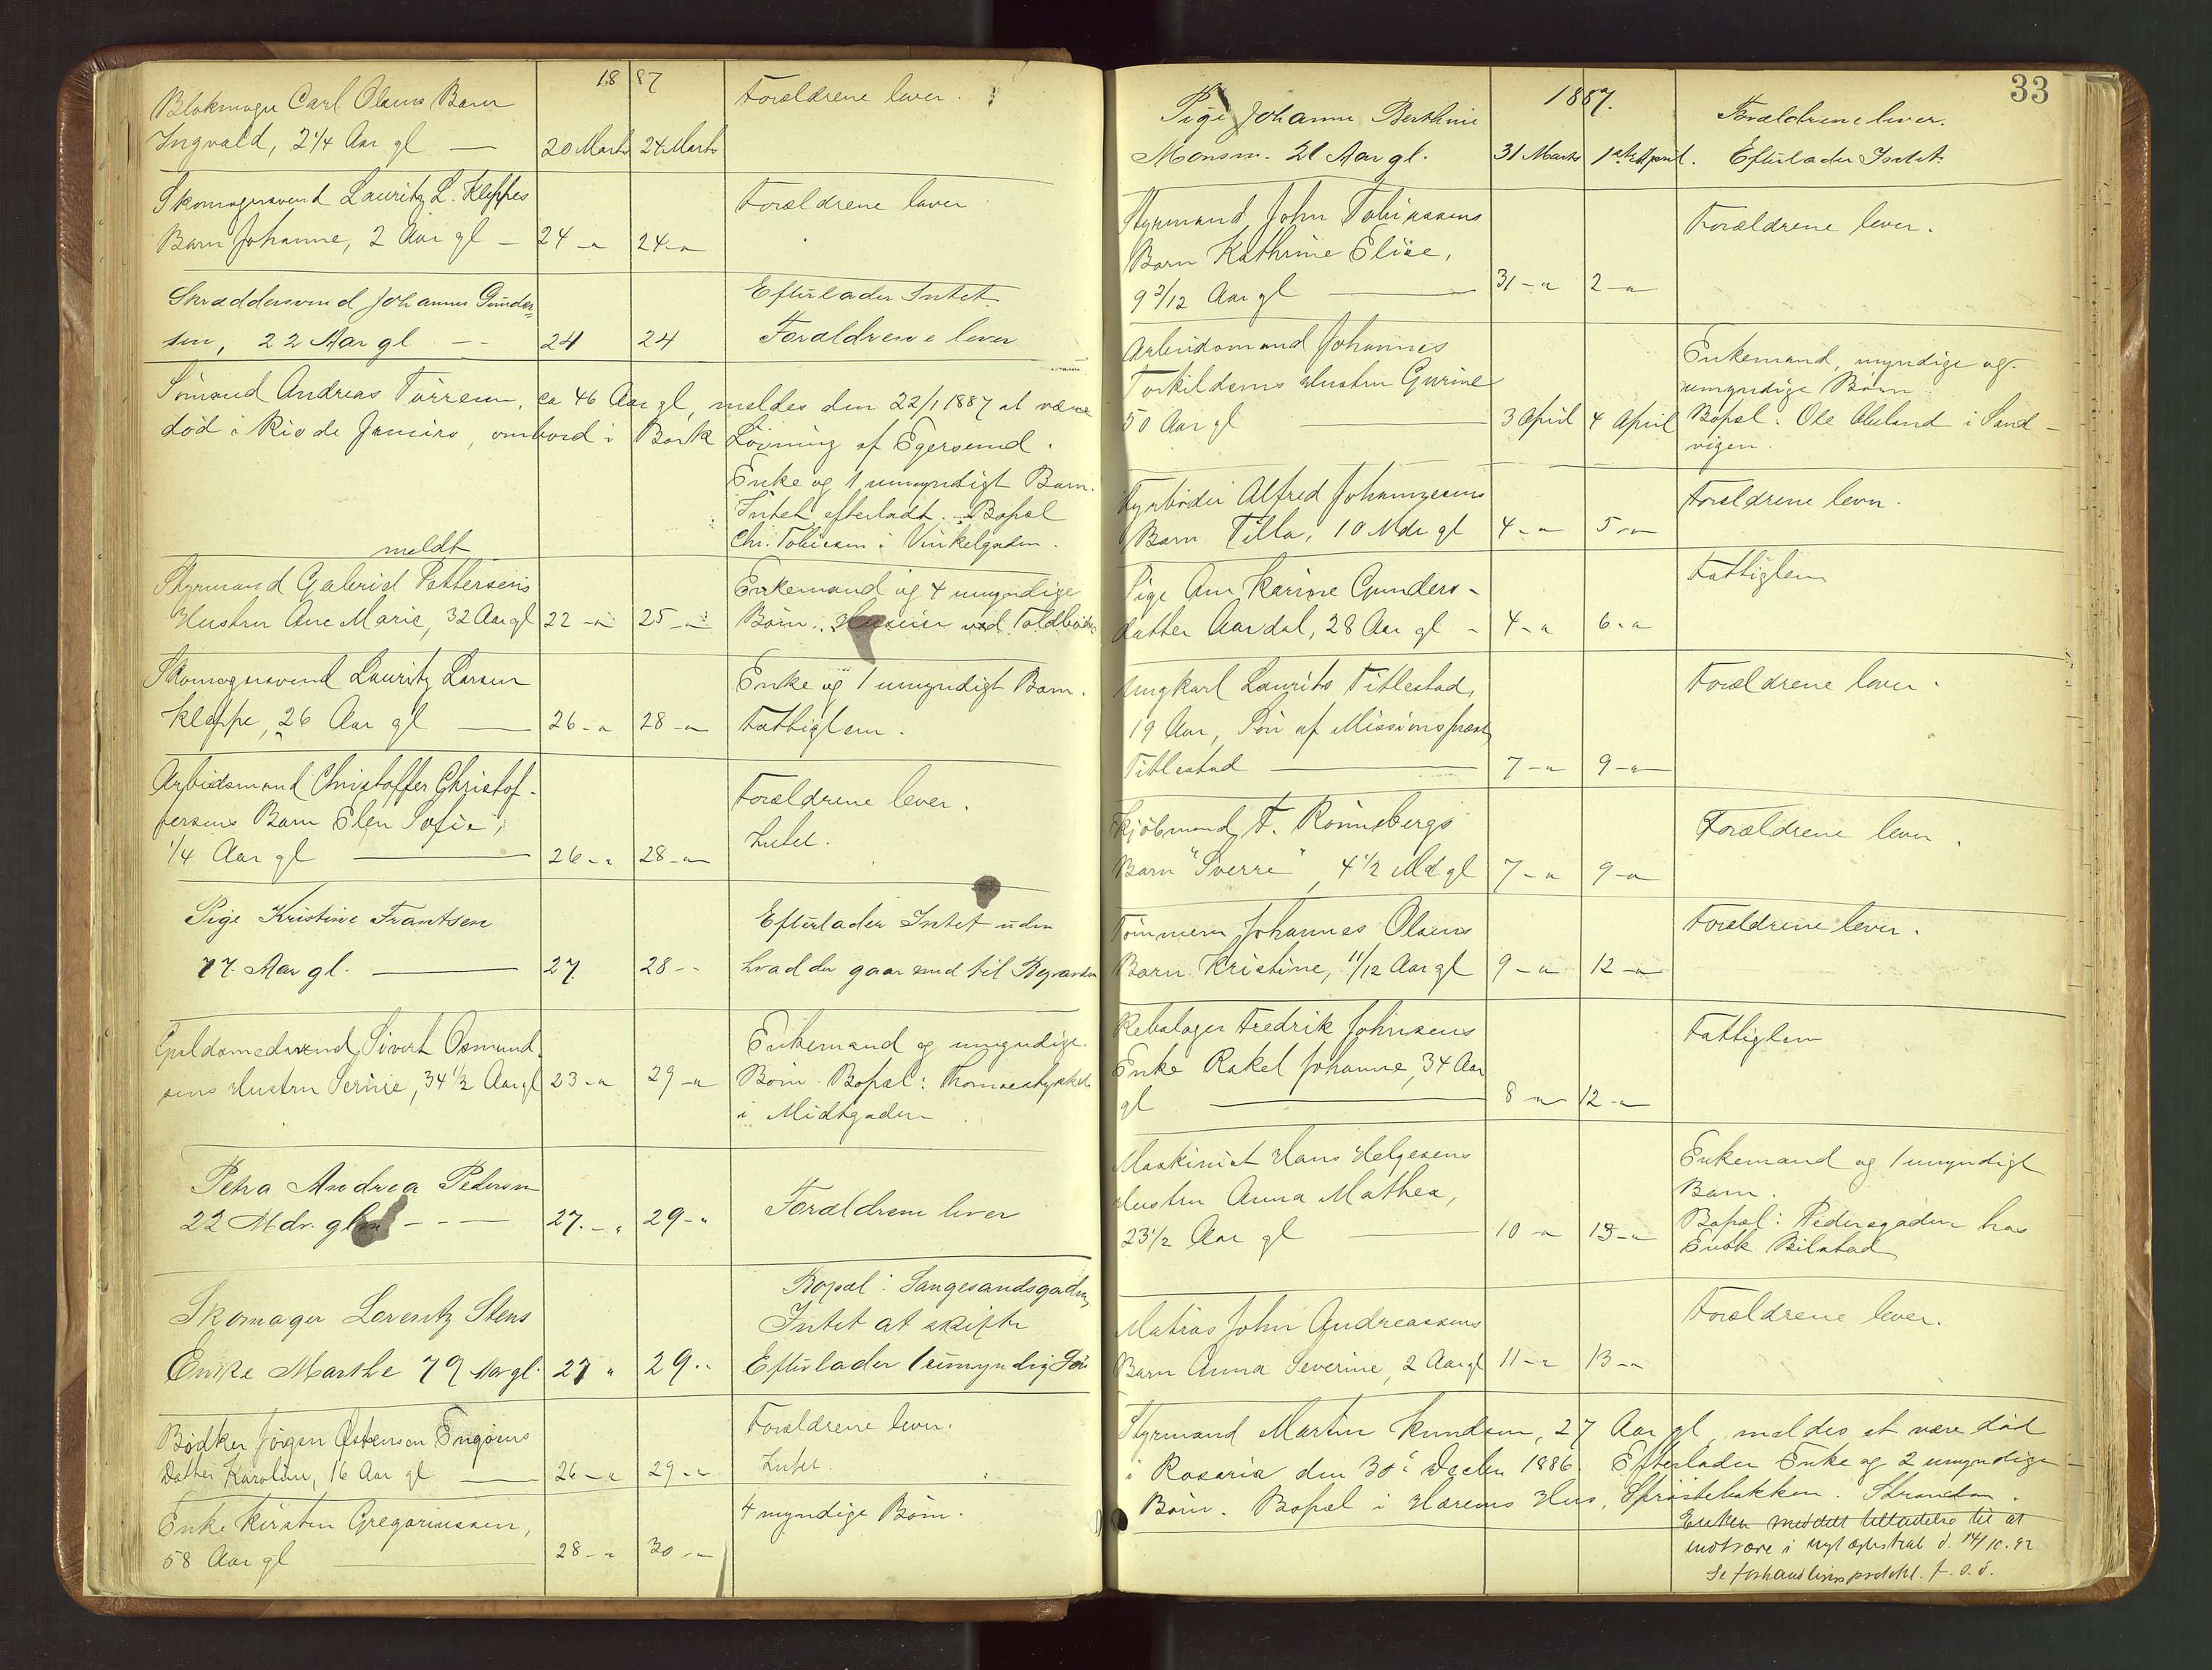 1887
Blokmager Carl Olsens Barn
Ingvald, 2 1/4 Aar gl — 20 Marts 24 Marts
Forældrene lever.
Skomagersvend Lauritz L. Kleppes
Barn Johanne, 2 Aar gl — 24 - " 24 - "
Forældrene lever
Skræddersvend Johannes Gunder-
sen, 22 Aar gl -- 24 24
Efterlader Intet.
Forældrene lever
Sömand Andreas Törresen, ca 46 Aar gl, meldes den 22/1 1887 at være
död i Rio de Janeiro, ombord i Bark Lövning af Egersund.
Enke og 1 umyndigt Barn.
Intet efterladt. Bopæl
Chr. Tobiesen i Vinkelgaden.
meldt
Styrmand Gabriel Pettersens
Hustru Ane Marie, 32 Aar gl 22 - " 25 - "
Enkemand og 4 umyndige
Börn. ved Toldboden
Skomagersvend Lauritz Larsen
Kleppe, 26 Aar gl — 26 - " 28 - "
Enke og 1 umyndigt Barn.
Fattiglem.
Arbeidsmand Christoffer Christof-
fersens Barn Elen Sofie,
1/4 Aar gl — 26 - " 28 - "
Forældrene lever.
Intet.
Pige Kristine Frantsen
77 Aar gl. — 27 28 - -
Efterlader Intet uden
hvad der gaar med til Begravelsen
Guldsmedsvend Sivert Osmund-
sens Hustru Serine, 34 1/2 Aar gl 23 - " 29 - "
Enkemand og umyndige
Börn. Bopæl: Thomasstykket
i Midtgaden
Petra Andrea Pedersen
22 Mdr. gl - - — 27. - " 29 - "
Forældrene lever
Skomager Lorentz Stens
Enke Marthe 79 Aar gl. 27 " 29 - -
Bopæl: Langesandsgaden,
Intet at skifte
Efterlader 1 umyndig Sön
Bødker Jörgen Østensen Engöens
Datter Karoline, 16 Aar gl — 26 - " 29 - "
Forældrene lever.
Intet.
Enke Kirsten Gregoriussen,
58 Aar gl — 28 - " 30 - "
4 myndige Börn.
33
1887.
Pige Johanne Berthine
Monsen. 21 Aar gl. 31 Marts 1ste April.
Forældrene lever.
Efterlader Intet.
Styrmand John Tobiassens
Barn Kathrine Elise,
9 2/12 Aar gl — 31 - " 2 - "
Forældrene lever.
Arbeidsmand Johannes
Torkildsens Hustru Gurine
50 Aar gl — 3 April 4 April
Enkemand, myndige og
umyndige Börn
Bopæl: Ole Aluland i Sand-
vigen.
Fyrböder Alfred Johannesens
Barn Tilla, 10 Mdr gl 4 - " 5 - "
Forældrene lever.
Pige Ane Karine Gunders-
datter Aardal, 28 Aar gl - 4 - " 6 - "
Fattiglem
Ungkarl Laurits Titlestad,
19 Aar, Sön af Missionsprest
Titlestad — 7 - " 9 - "
Forældrene lever.
Kjöbmand F. Rönnebergs
Barn "Sverre", 4 1/2 Md gl 7 - " 9 - "
Forældrene lever.
Tömmerm Johannes Olsens
Barn Kristine, 11/12 Aar gl 9 - " 12 - "
Forældrene lever.
Rebslager Fredrik Johnsens
Enke Rakel Johanne, 34 Aar
gl — 8 - " 12 - "
Fattiglem
Maskinist Hans Helgesens
Hustru Anna Mathea,
23 1/2 Aar gl — 10 - " 13 - "
Enkemand og 1 umyndigt
Barn.
Bopæl: Pedersgaden hos
Enok Bilstad
Matros John Andreassens
Barn Anna Severine, 2 Aar gl 11 - " 13 - "
Forældrene lever.
Styrmand Martin Knudsen, 27 Aar gl, meldes at være död
i Rosaria den 30' Decbr 1886. Efterlader Enke og 2 umyndige
Börn. Bopæl i Hærems Hus, Spröitebakken. Stranden.
Enken meddelt tilladelse til at
indtræde i nyt ægteskab d. 14/10.92
Se forhandlingsprotokl. f. s. d.